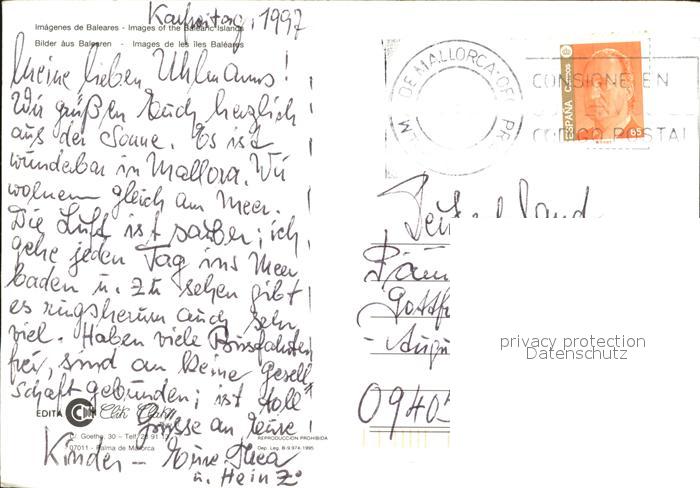 Karfreitag, 1997
Imágenes de Baleares - Images of the Balearic Islands
Bilder aus Balearen - Images de les îles Baléares
Meine lieben Uhlmanns!
Wir grüßen Euch herzlich
aus der Sonne. Es ist
wunderbar in Mallorca. Wir
wohnen gleich am Meer.
Die Luft ist sauber; ich
gehe jeden Tag ins Meer
baden u. zu sehen gibt
es ringsherum auch sehr
viel. Haben viele Busfahrten
frei, sind an keine Gesell
schaft gebunden; ist toll
EDITA
Grüsse an Eure!
C/. Goethe, 30 - Telf. 28 91 12
07011 - Palma de Mallorca
REPRODUCCION PROHIBIDA
Dep. Leg. B-9.974-1995
Kinder - Eure Thea
u. Heinz
DE MALLORCA
CONSIGNE EN
CODIGO POSTAL
ESPAÑA Correos
65
Deutschland
Gottf
- Augu
0940
privacy protection
Datenschutz